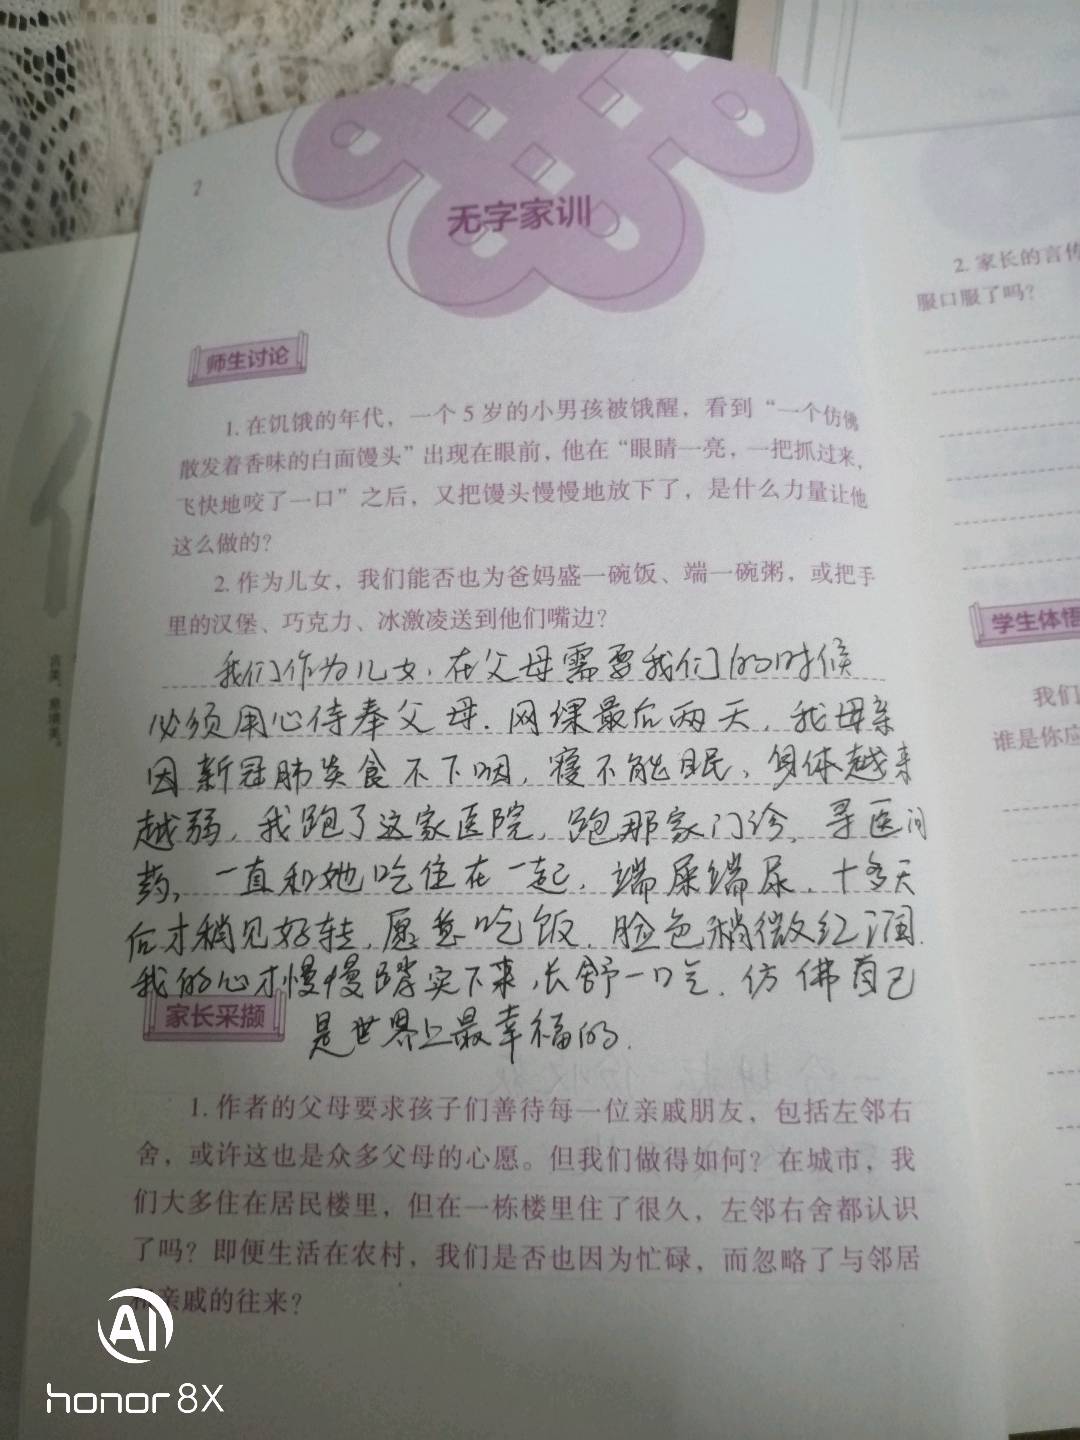 2
无字家训
师生讨论
1. 在饥饿的年代，一个 5 岁的小男孩被饿醒，看到“一个仿佛
散发着香味的白面馒头”出现在眼前，他在“眼睛一亮，一把抓过来，
飞快地咬了一口”之后，又把馒头慢慢地放下了，是什么力量让他
这么做的？
2. 作为儿女，我们能否也为爸妈盛一碗饭、端一碗粥，或把手
里的汉堡、巧克力、冰激凌送到他们嘴边？
我们作为儿女，在父母需要我们的时候
必须用心侍奉父母. 网课最后两天，我母亲
因新冠肺炎食不下咽，寝不能眠，身体越来
越弱，我跑了这家医院，跑那家门诊，寻医问
药，一直和她吃住在一起，端屎端尿，十多天
后才稍见好转，愿意吃饭，脸色稍微红润.
我的心才慢慢踏实下来，长舒一口气. 仿佛自己
是世界上最幸福的.
家长采撷
1. 作者的父母要求孩子们善待每一位亲戚朋友，包括左邻右
舍，或许这也是众多父母的心愿。但我们做得如何？在城市，我
们大多住在居民楼里，但在一栋楼里住了很久，左邻右舍都认识
了吗？即便生活在农村，我们是否也因为忙碌，而忽略了与邻居
和亲戚的往来？
2. 家长的言传
服口服了吗？
学生体悟
我们
谁是你应
言美、意境美。
AI
honor 8X